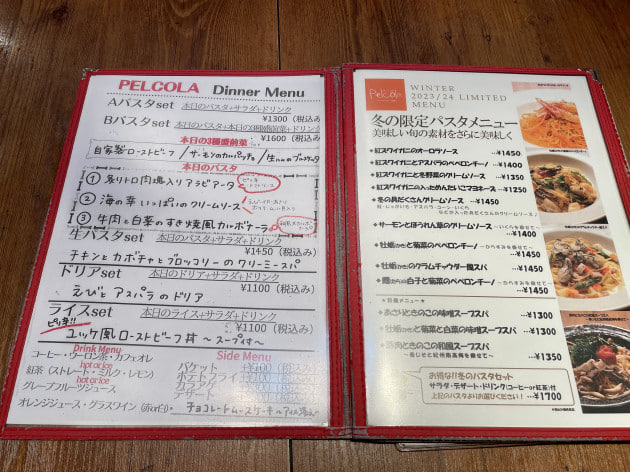 PELCOLA Dinner Menu
Aパスタset 本日のパスタ+サラダ+ドリンク
¥1300（税込み）
Bパスタset 本日のパスタ+本日の3種前菜+ドリンク
¥1600（税込み）
本日の3種盛前菜
自家製ローストビーフ / サーモンのカルパッチョ / 生ハムのブルスケッタ
本日のパスタ
① 炙りトロ肉塊入りアラビアータ
② 海の幸いっぱいのクリームソース
③ 牛肉と白菜のすき焼風カルボナーラ
生パスタset 本日のパスタ+サラダ+ドリンク
¥1450（税込み）
チキンとカボチャとブロッコリーのクリーミースパ
ドリアset 本日のドリア+サラダ+ドリンク
¥1100（税込み）
えびとアスパラのドリア
ライスset 本日のライス+サラダ+ドリンク
ピリ辛!! ¥1100（税込み）
ユッケ風ローストビーフ丼 〜スープ付〜
Drink Menu
コーヒー・ウーロン茶・カフェオレ
hot or ice
紅茶（ストレート・ミルク・レモン）
hot or ice
グレープフルーツジュース
オレンジジュース・グラスワイン（赤or白）
Side Menu
バケット
ポテトフライ
サラダ
デザート
チョコレートムースケーキ
Pelcola
WINTER
2023/24 LIMITED
MENU
冬の限定パスタメニュー
美味しい旬の素材をさらに美味しく
紅ズワイガニのオーロラソース …¥1450
紅ズワイガニとアスパラのペペロンチーノ …¥1400
紅ズワイガニと冬野菜のクリームソース …¥1350
紅ズワイガニの入っためんたいこマヨネーズ …¥1250
冬の具だくさんのクリームソース
などが入った具だくさんのクリームソース
…¥1350
サーモンとほうれん草のクリームソース
〜いくらを載せて〜
…¥1400
牡蛎(かき)と菊菜のペペロンチーノ
〜からすみを載せて〜
…¥1450
牡蛎(かき)のクラムチャウダー風スパ
…¥1450
と白子と菊菜のペペロンチーノ
〜からすみを載せて〜
…¥1450
あさりときのこの味噌スープスパ …¥1300
牡蛎(かき)と菊菜と白菜の味噌スープスパ …¥1350
肉ときのこの和風スープスパ
…¥1350
お得な!!冬のパスタセット
サラダ・デザート・ドリンク(コーヒーor紅茶)付
上記のパスタよりお選びください! …¥1700